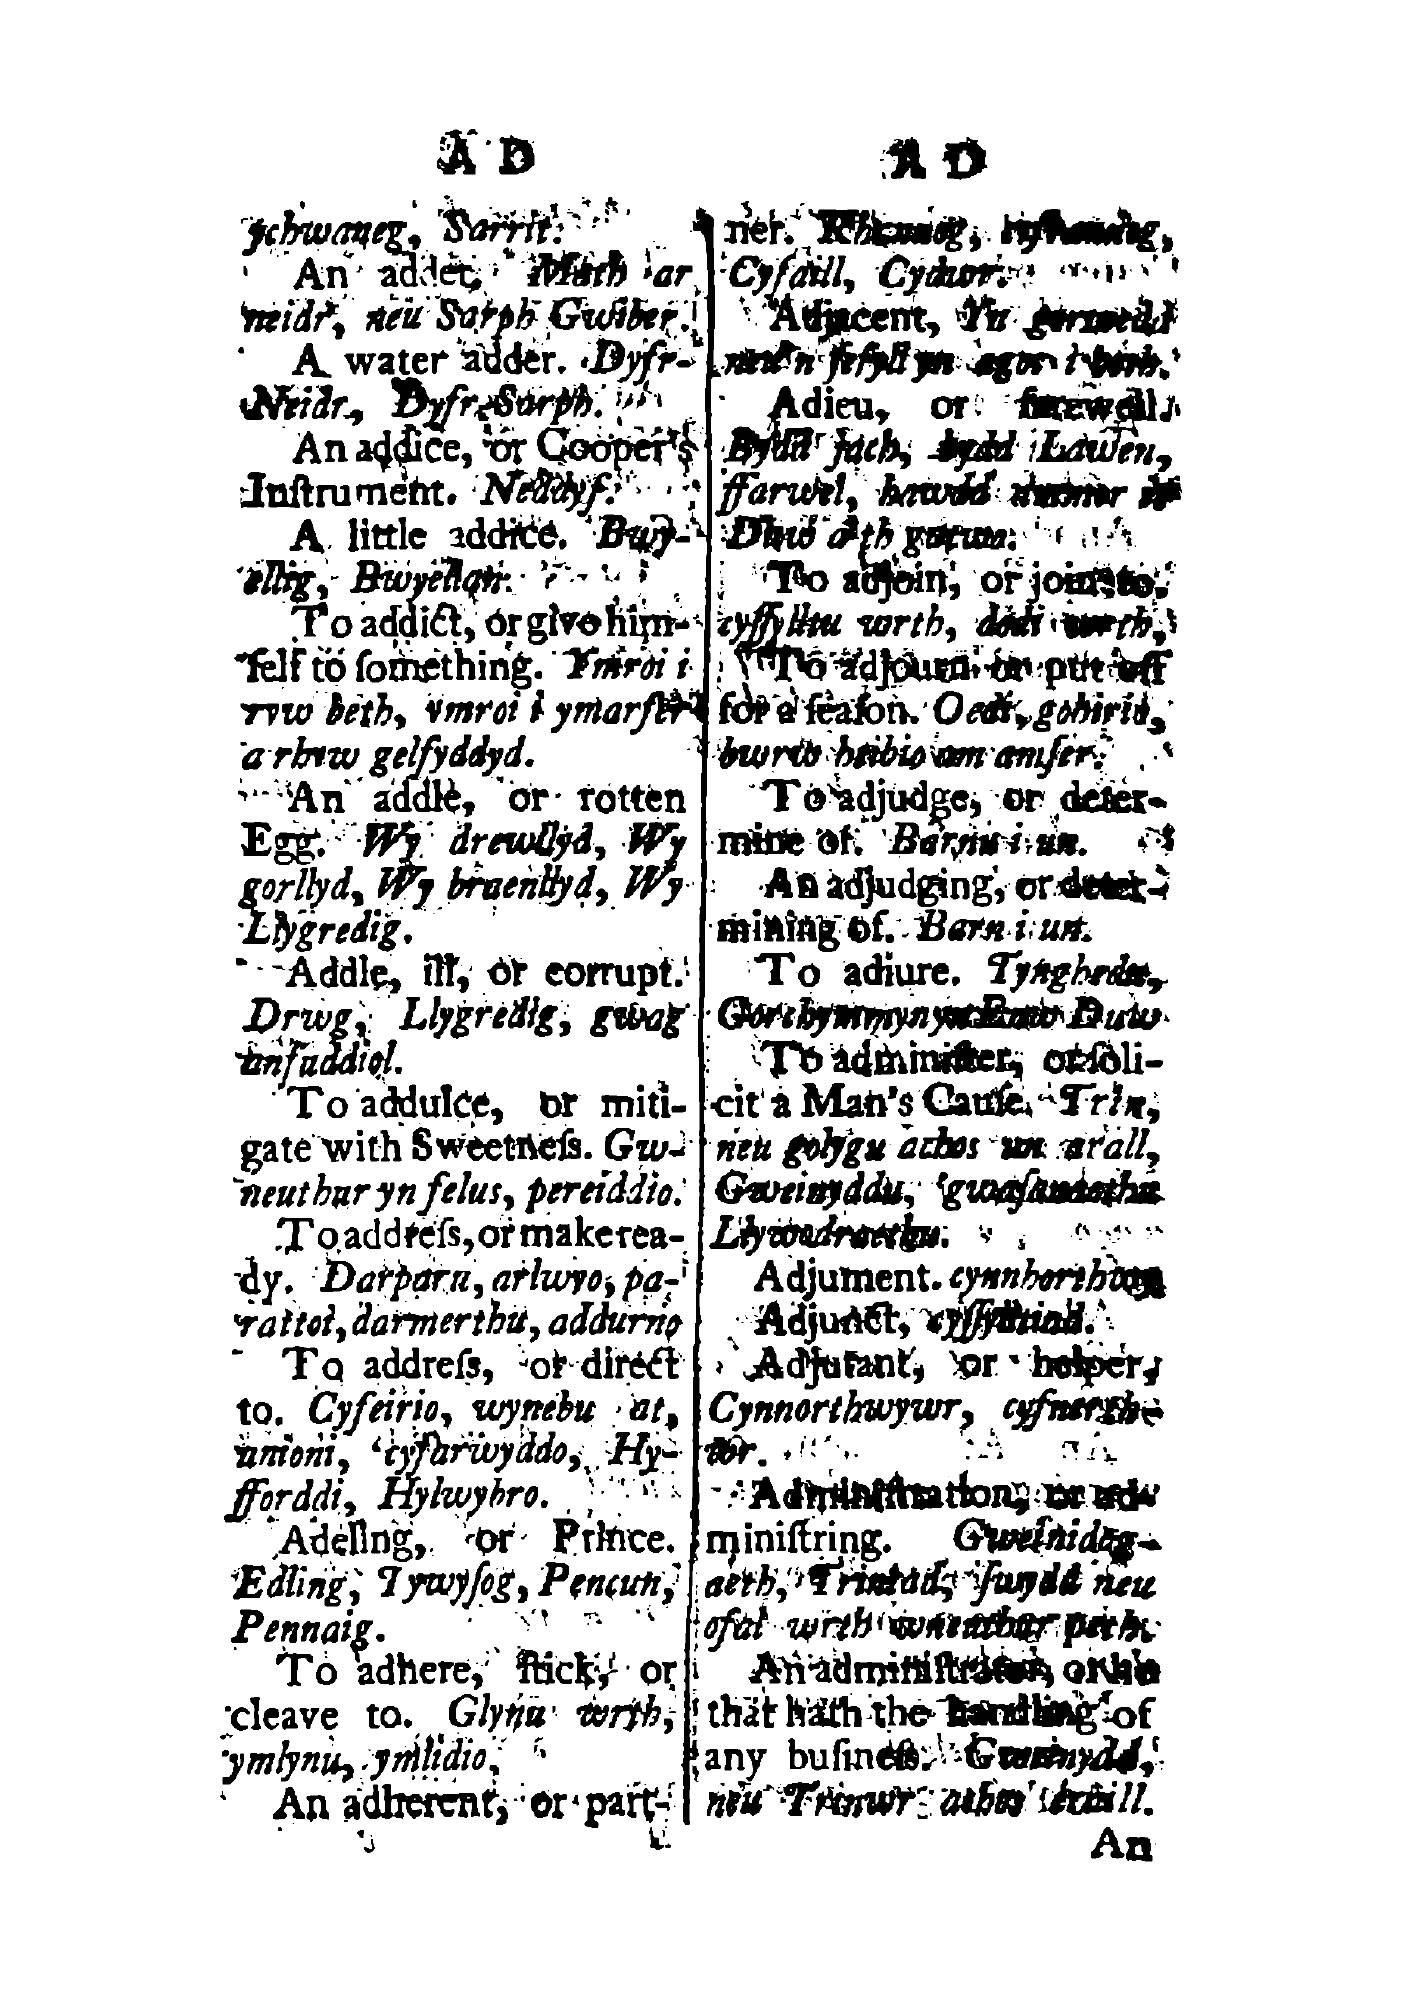 A D
ychwaneg, Sarrit.
An adder. Math ar
neidr, neu Sarph Gwiber.
A water adder. Dyfr-
Neidr, Dyfr-Sarph.
An addice, or Cooper's
Inſtrument. Neddyf.
A little addice. Bwy-
ellig, Bwyellan.
To addict, or give him-
ſelf to ſomething. Ymroi i
ryw beth, ymroi i ymarfer
a rhyw gelfyddyd.
An addle, or rotten
Egg. Wy drewllyd, Wy
gorllyd, Wy braenllyd, Wy
Llygredig.
Addle, ill, or corrupt.
Drwg, Llygredig, gwag
anfuddiol.
To addulce, or miti-
gate with Sweetneſs. Gw-
neuthur yn felus, pereiddio.
To addreſs, or make rea-
dy. Darparu, arlwyo, pa-
rattoi, darmerthu, addurnio
To addreſs, or direct
to. Cyfeirio, wynebu at,
unioni, cyfarwyddo, Hy-
fforddi, Hylwybro.
Adeling, or Prince.
Edling, Tywyſog, Pencun,
Pennaig.
To adhere, ſtick, or
cleave to. Glynu wrth,
ymlynu, ymlidio,
An adherent, or part-
A D
ner.
Cyfaill, Cydwr.
Adjacent, Yn gorwedd
neu'n ſefyll yn agos i beth.
Adieu, or farewell.
Bydd iach, bydd Lawen,
ffarwel,
Duw a'th
To adjoin, or join to.
cyſſylltu wrth, dodi wrth,
To adjourn or put off
for a ſeaſon. Oedi, gohirio,
bwrw heibio am amſer.
To adjudge, or deter-
mine of. Barnu i un.
An adjudging, or deter-
mining of. Barn i un.
To adiure. Tynghedu,
Gorchymmyn yn Enw Duw
To adminiſter, or ſoli-
cit a Man's Cauſe. Trin,
neu golygu achos un arall,
Gweinyddu, gwaſanaethu
Llywodraethu.
Adjument. cynnhorthwy
Adjunct, cyſſylltiad.
Adjutant, or helper,
Cynnorthwywr, cyfnerth-
wr.
Adminiſtration, or ad-
miniſtring. Gweinidog-
aeth, Triniad, ſwydd neu
ofal wrth wneuthur peth.
An adminiſtrator, or he
that hath the handling of
any buſineſs. Gweinydd,
neu Triniwr achos eraill.
An